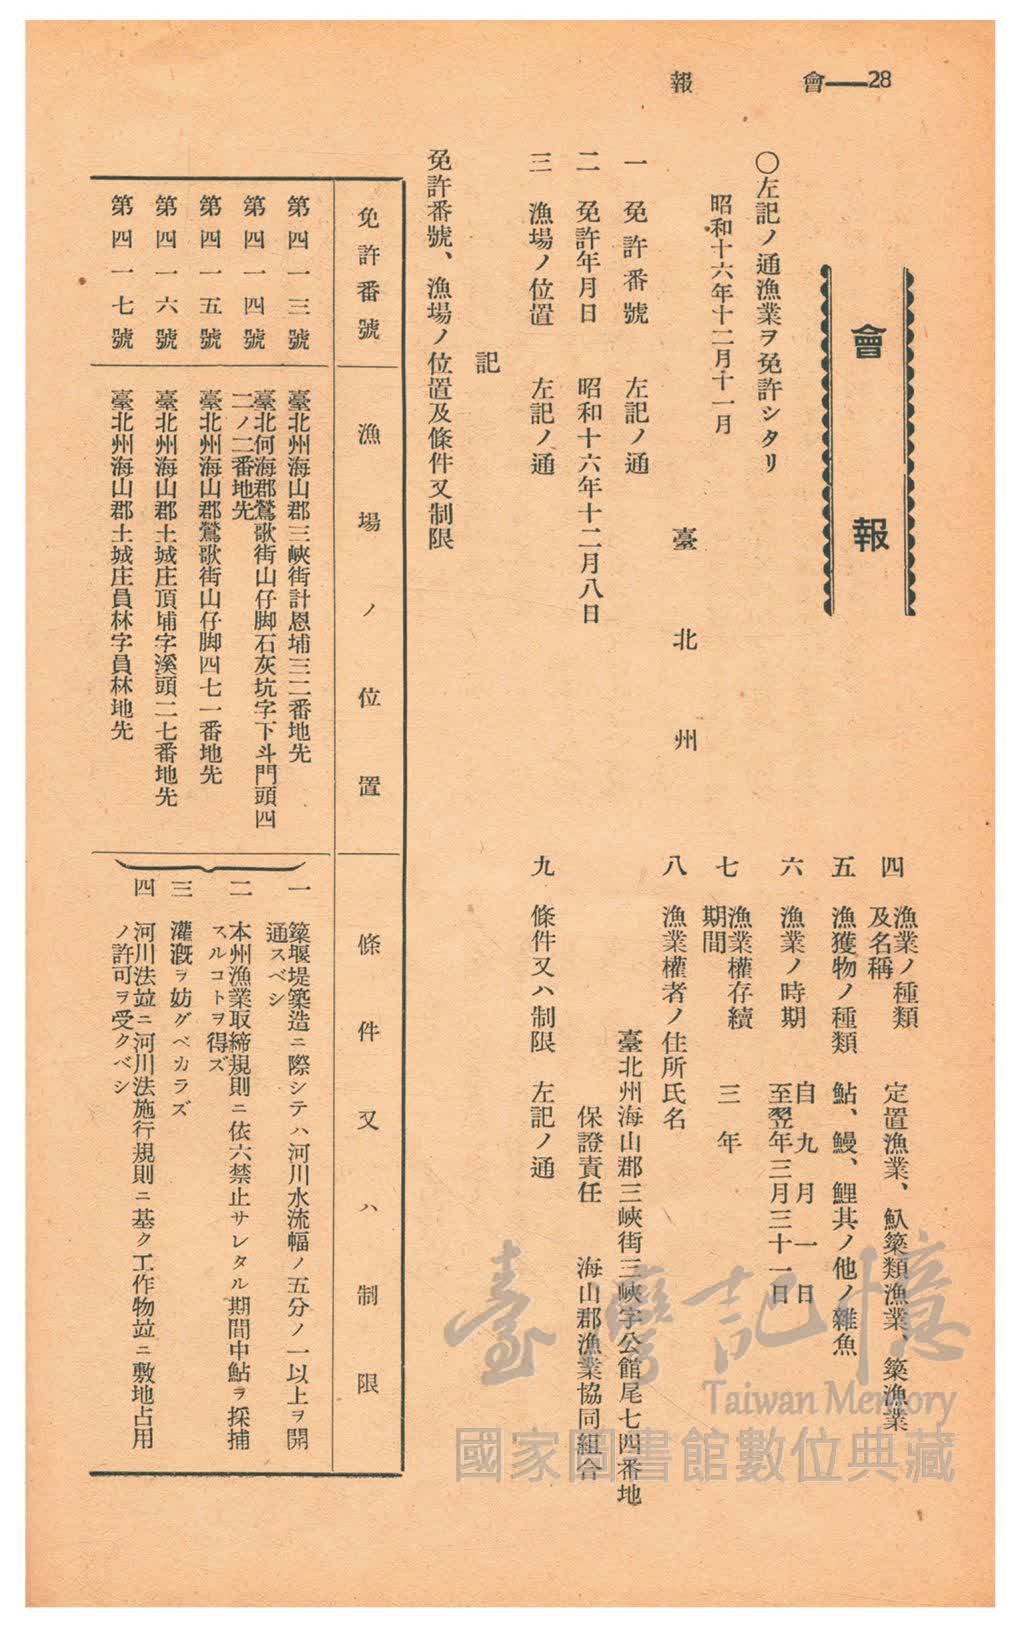 會報 28
會報
○左記ノ通漁業ヲ免許シタリ
昭和十六年十二月十一月
臺北州
一 免許番號 左記ノ通
二 免許年月日 昭和十六年十二月八日
三 漁場ノ位置 左記ノ通
四 漁業ノ種類及名稱 定置漁業、魞簗類漁業、簗漁業
五 漁獲物ノ種類 鮎、鰻、鯉其ノ他ノ雜魚
六 漁業ノ時期 自九月一日
至翌年三月三十一日
七 漁業權存續期間 三年
八 漁業權者ノ住所氏名
臺北州海山郡三峽街三峽字公館尾七四番地
保證責任 海山郡漁業協同組合
九 條件又ハ制限 左記ノ通
記
免許番號、漁場ノ位置及條件又制限
免許番號 漁場ノ位置 條件又ハ制限
第四一三號 臺北州海山郡三峽街計恩埔三二番地先
第四一四號 臺北何海郡鶯歌街山仔脚石灰坑字下斗門頭四
二ノ二番地先
第四一五號 臺北州海山郡鶯歌街山仔脚四七一番地先
第四一六號 臺北州海山郡土城庄頂埔字溪頭二七番地先
第四一七號 臺北州海山郡土城庄員林字員林地先
一 簗堰堤築造ニ際シテハ河川水流幅ノ五分ノ一以上ヲ開
通スベシ
二 本州漁業取締規則ニ依六禁止サレタル期間中鮎ヲ採捕
スルコトヲ得ズ
三 灌漑ヲ妨グベカラズ
四 河川法竝ニ河川法施行規則ニ基ク工作物竝ニ敷地占用
ノ許可ヲ受クベシ
臺灣記憶
Taiwan Memory
國家圖書館數位典藏